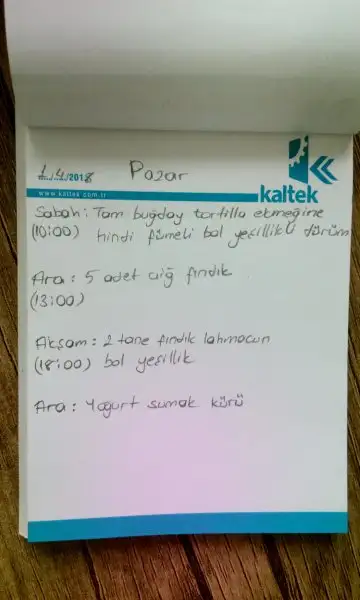 1/4/2018 Pazar
www.kaltek.com.tr
kaltek
Sabah : Tam buğday tortilla ekmeğine
(10:00) hindi fümeli bol yeşillikli dürüm
Ara : 5 adet çiğ fındık
(13:00)
Akşam : 2 tane fındık lahmacun
(18:00) bol yeşillik
Ara : Yoğurt sumak kürü